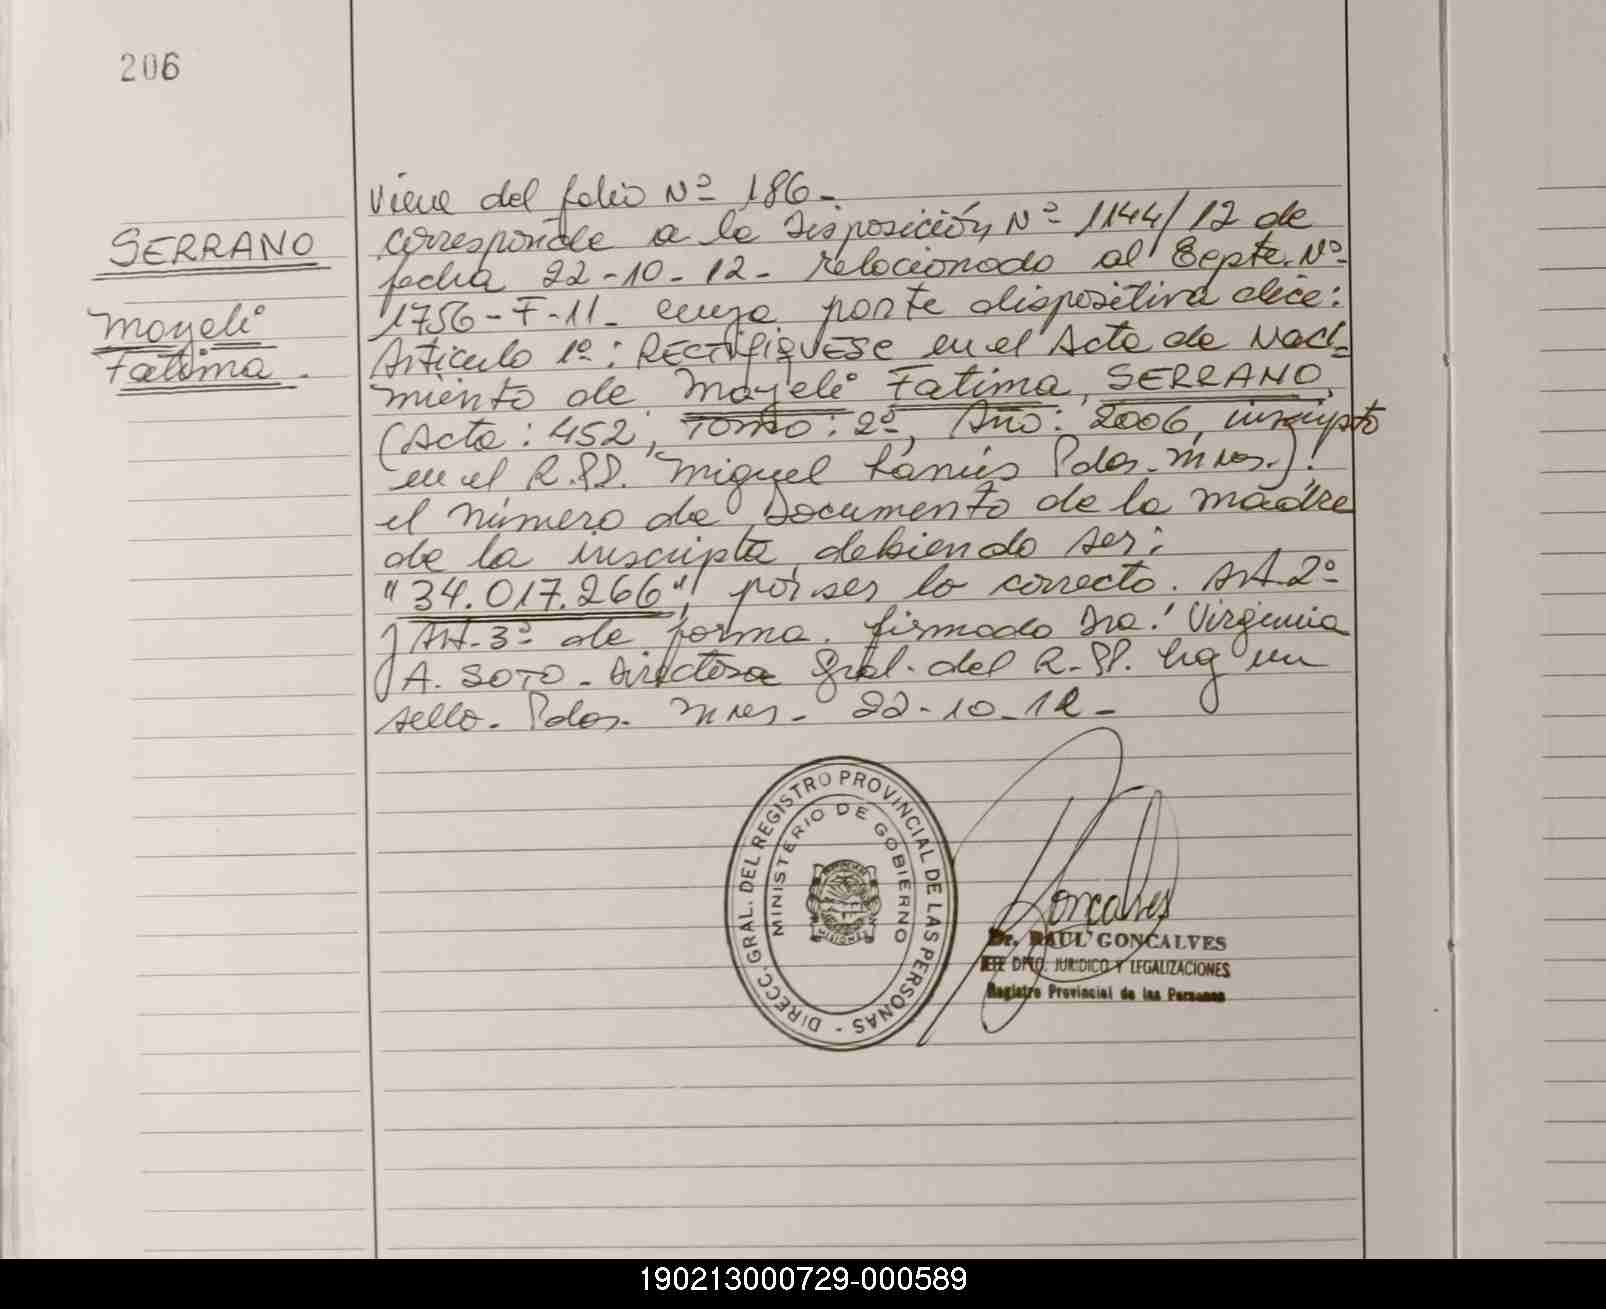 206
SERRANO
Mayeli
Fatima.
Viene del folio Nº 186-
Corresponde a la Disposición Nº 1144/12 de
fecha 22-10-12- relacionado al Expte. Nº
1756-F-11- cuya parte dispositiva dice:
Articulo 1º: RECTIFIQUESE en el Acta de Naci=
miento de Mayeli Fatima, SERRANO,
(Acta: 452, Tomo: 2º, Año: 2006, inscripta
en el R.PP. Miguel Lanús Pdas. Mnes.):
el número de Documento de la madre
de la inscripta, debiendo ser:
"34.017.266", por ser lo correcto. Art. 2º
y Art. 3º de forma. firmado Dra. Virginia
A. SOTO - Directora Gral. del R.PP. hay un
sello. Pdas. Mnes- 22-10-12-
DIRECC. GRAL. DEL REGISTRO PROVINCIAL DE LAS PERSONAS -
MINISTERIO DE GOBIERNO
MISIONES
Goncalves
Dr. RAUL GONCALVES
JEFE DPTO. JURIDICO Y LEGALIZACIONES
Registro Provincial de las Personas
190213000729-000589